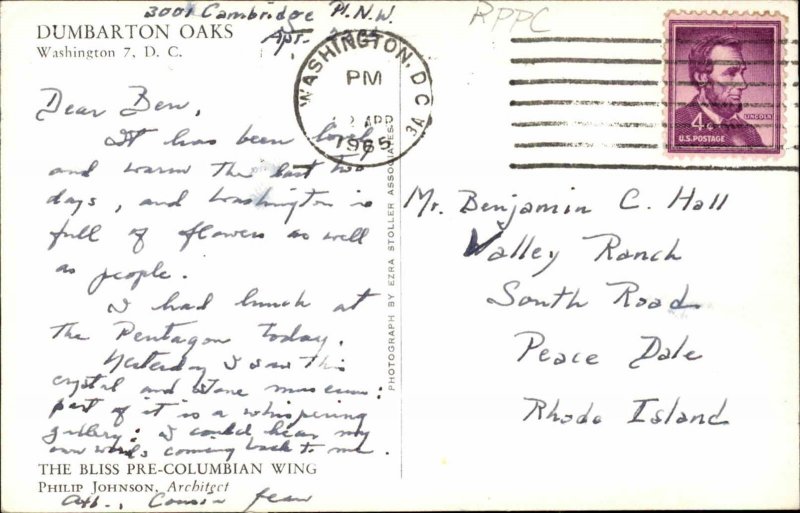 3001 Cambridge Pl. N.W.
Apt.
RPPC
DUMBARTON OAKS
Washington 7, D. C.
WASHINGTON, D.C.
PM
APR
1965
3A
4¢
LINCOLN
U.S. POSTAGE
Dear Ben,
It has been lovely
and warm the last two
days, and Washington is
full of flowers as well
as people.
I had lunch at
the Pentagon today.
Yesterday I saw this
crystal and stone museum:
part of it is a whispering
gallery: I could hear my
own words coming back to me.
THE BLISS PRE-COLUMBIAN WING
PHILIP JOHNSON, Architect
Cousin Jean
PHOTOGRAPH BY EZRA STOLLER ASSOCIATES
Mr. Benjamin C. Hall
Valley Ranch
South Road
Peace Dale
Rhode Island